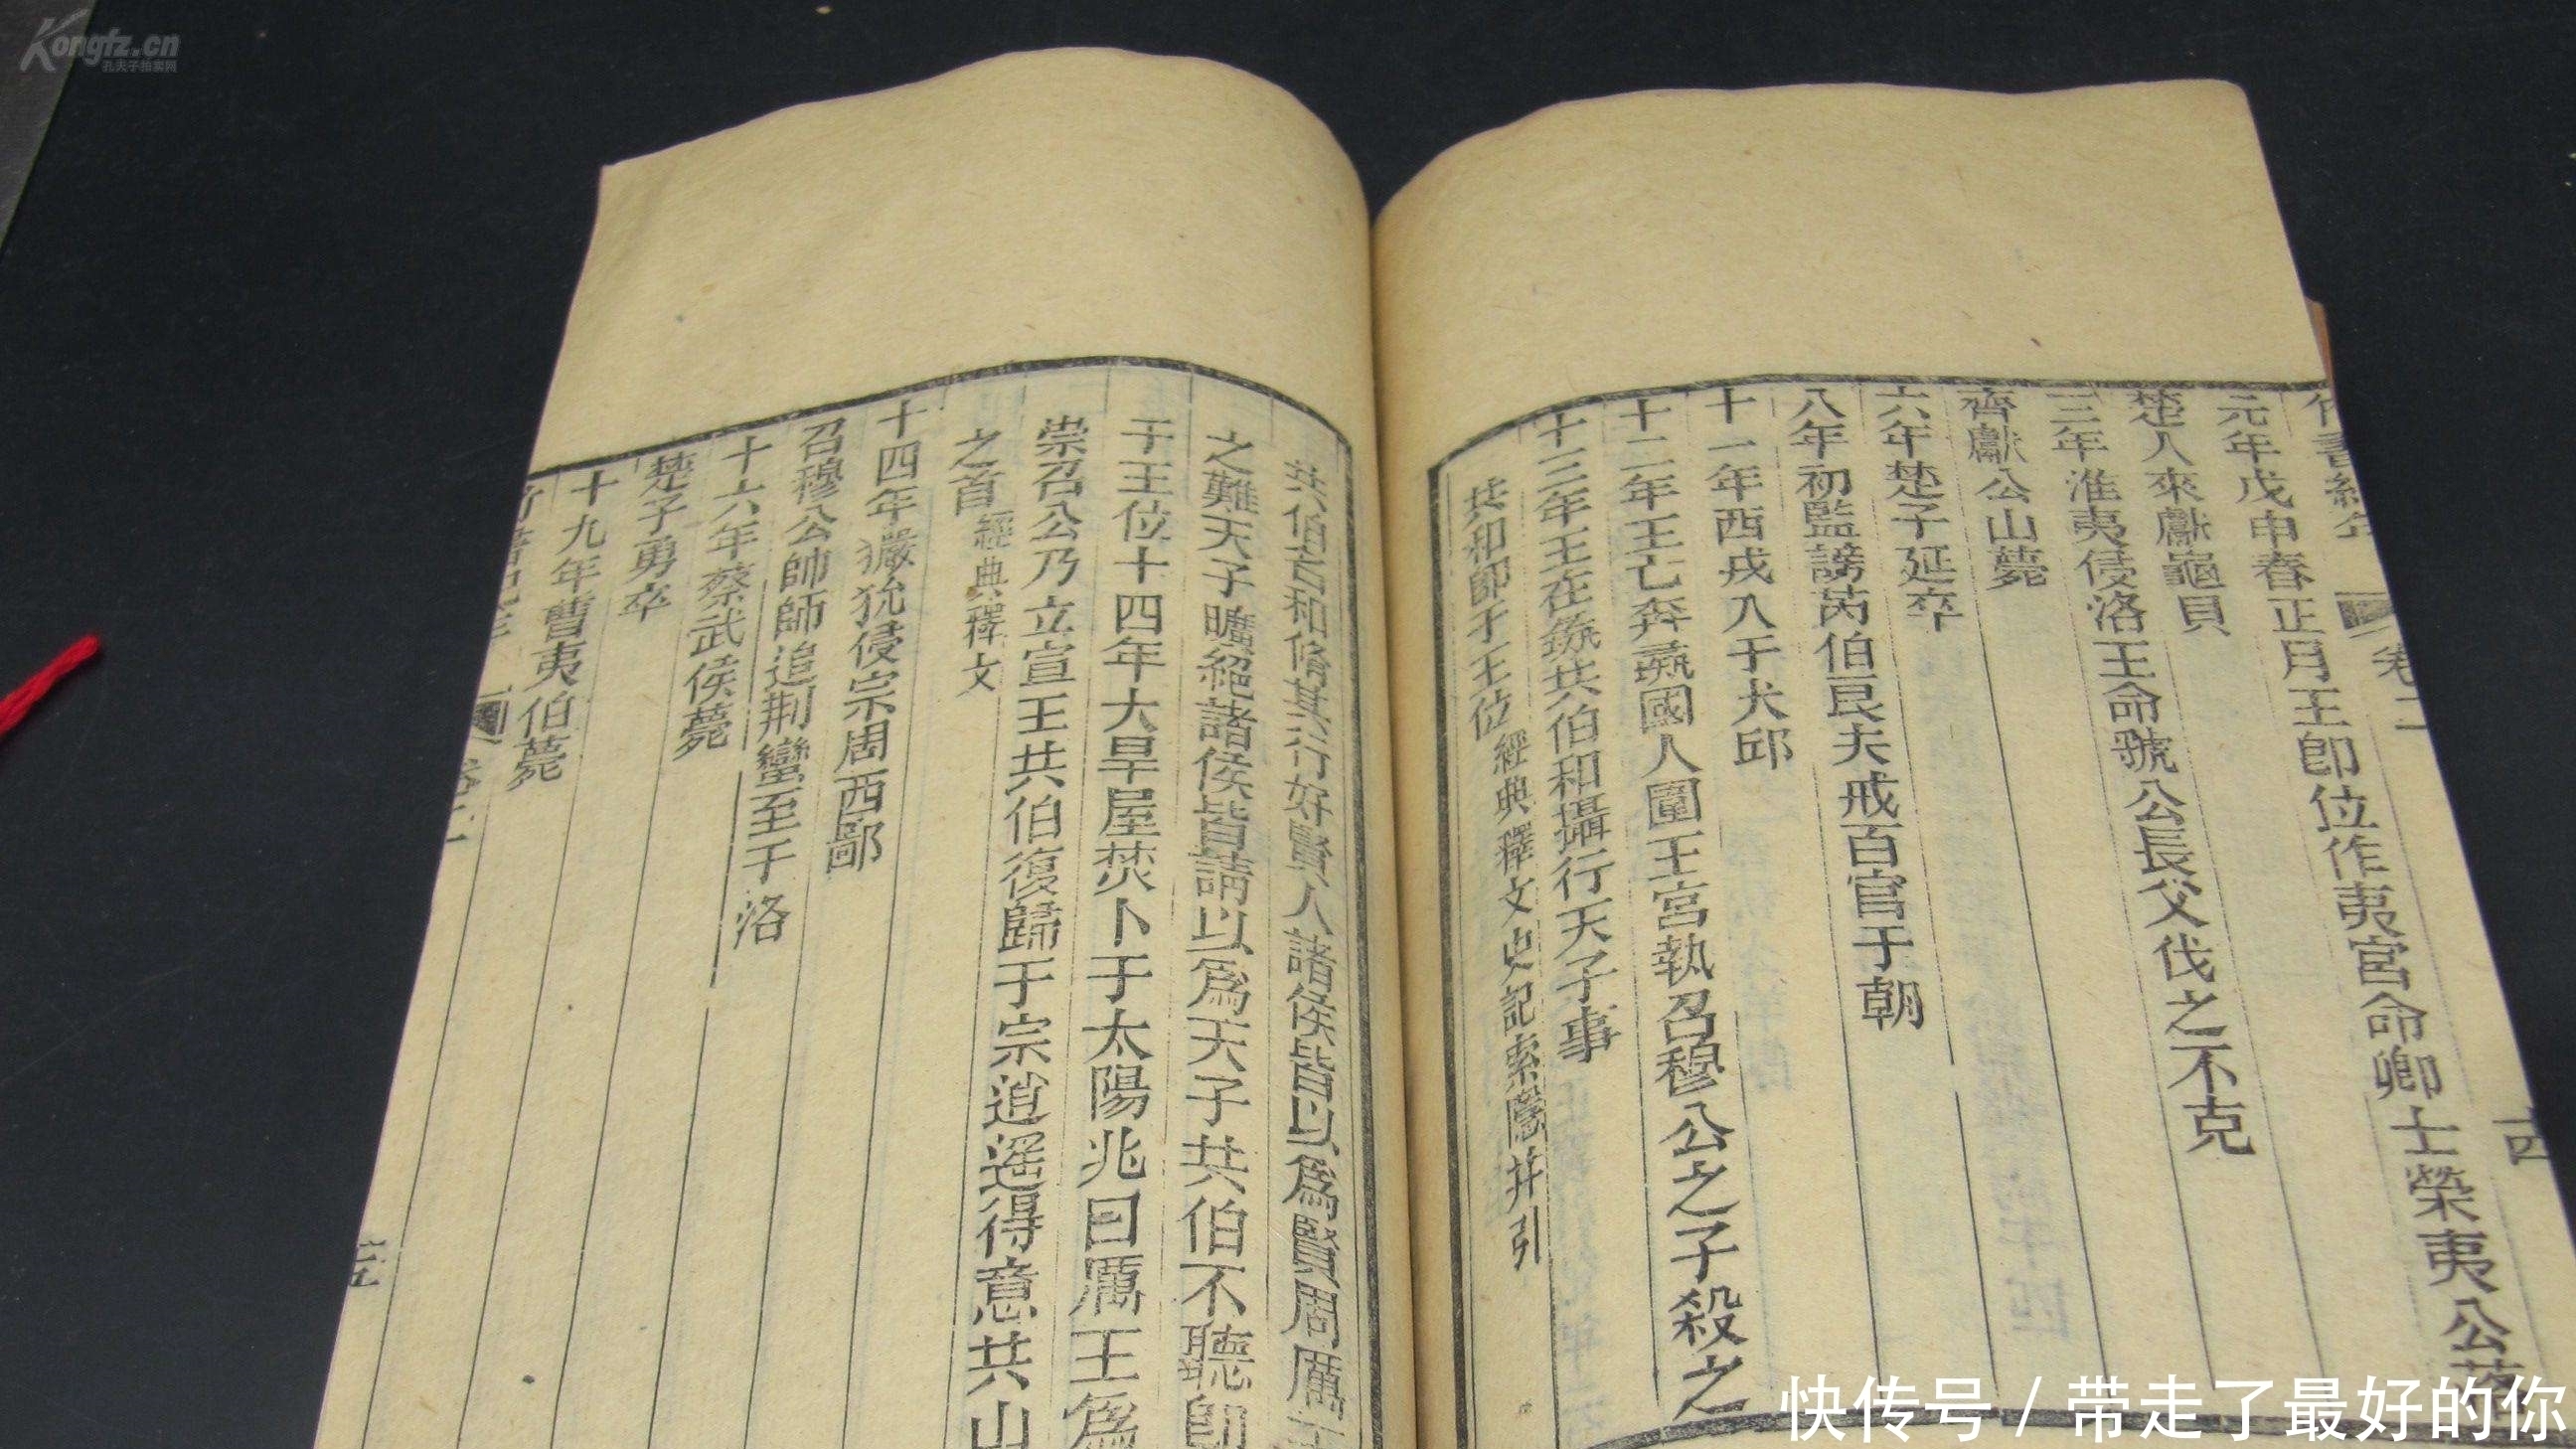 Kongfz.cn
孔夫子拍卖网
竹書紀年 卷二 十四
元年戊申春正月王卽位作夷宮命卿士榮夷公落
楚人來獻龜貝
三年淮夷侵洛王命虢公長父伐之不克
齊獻公山薨
六年楚子延卒
八年初監謗芮伯良夫戒百官于朝
十一年西戎入于犬邱
十二年王亡奔彘國人圍王宮執召穆公之子殺之
十三年王在彘共伯和攝行天子事
共和卽于王位經典釋文史記索隱并引
共伯名和脩其行好賢人諸侯皆以爲賢周厲王
之難天子曠絕諸侯皆請以爲天子共伯不聽卽
于王位十四年大旱屋焚卜于太陽兆曰厲王爲
崇召公乃立宣王共伯復歸于宗逍遥得意共山
之首經典釋文
十四年玁狁侵宗周西鄙
召穆公帥師追荆蠻至于洛
十六年蔡武侯薨
楚子勇卒
十九年曹夷伯薨
竹書紀年 卷二 十五
快传号 / 带走了最好的你